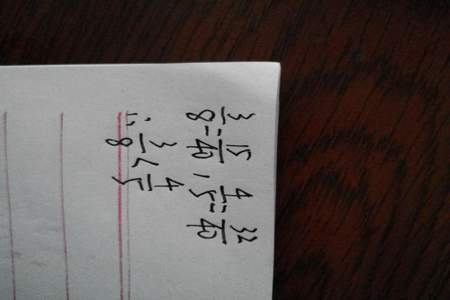 3/8 = 15/40 , 4/5 = 32/40
∴ 3/8 < 4/5